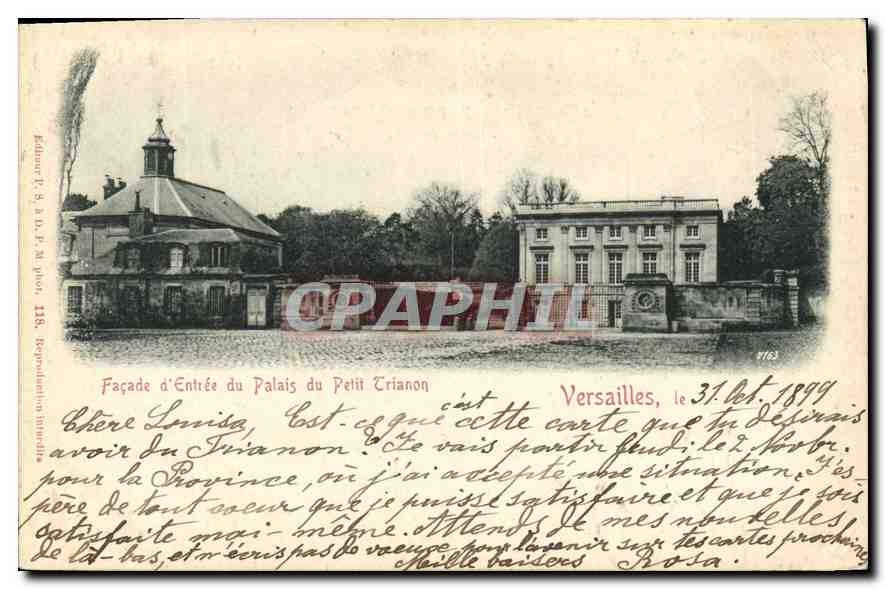 Editeur P. S. à D. P. M phot. 118. Reproduction interdite
CPAPHIL
9163
Façade d'Entrée du Palais du Petit Trianon
Versailles, le 31 Oct. 1899
Chère Louisa, Est-ce que c'est cette carte que tu désirais
avoir du Trianon? Je vais partir Jeudi le 2 Novbr.
pour la Province, où j'ai accepté une situation. J'es-
père de tout coeur que je puisse satisfaire et que je sois
satisfaite moi-même. Attends de mes nouvelles
de là-bas, et n'écris pas de pour l'avenir sur tes cartes prochaines
Mille baisers Rosa.